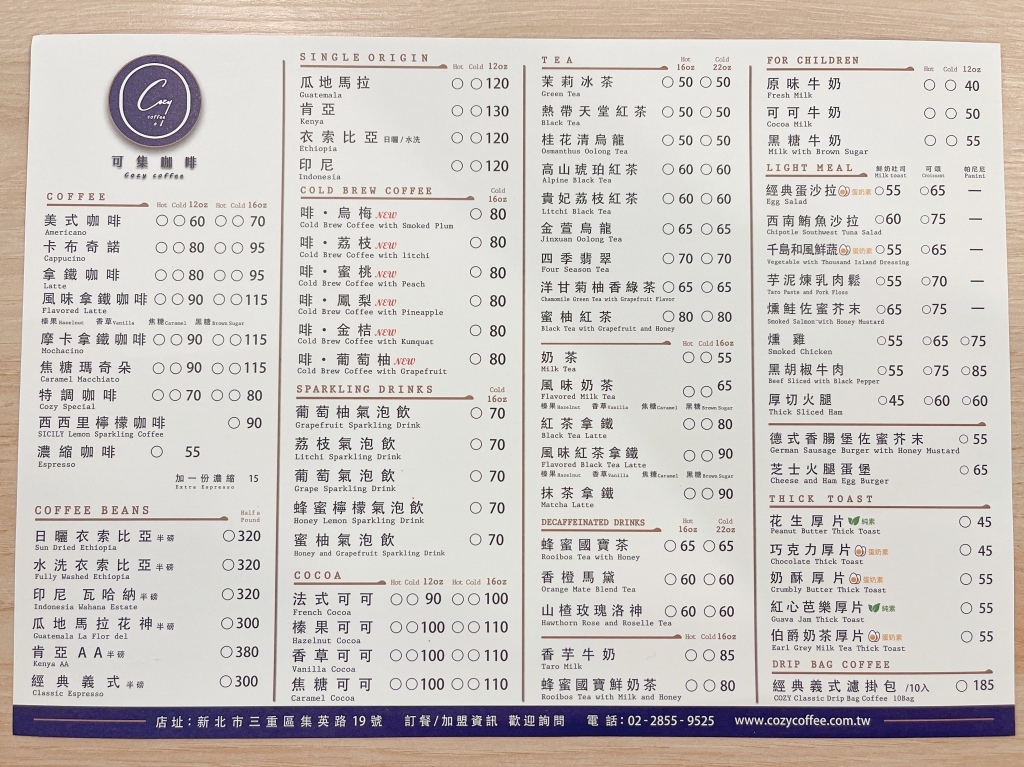 Cozy
coffee
可集咖啡
Cozy coffee
COFFEE
Hot Cold 12oz Hot Cold 16oz
美式咖啡 ○ ○ 60 ○ ○ 70
Americano
卡布奇諾 ○ ○ 80 ○ ○ 95
Cappucino
拿鐵咖啡 ○ ○ 80 ○ ○ 95
Latte
風味拿鐵咖啡 ○ ○ 90 ○ ○ 115
Flavored Latte
榛果Hazelnut 香草Vanilla 焦糖Caramel 黑糖Brown Sugar
摩卡拿鐵咖啡 ○ ○ 90 ○ ○ 115
Mochacino
焦糖瑪奇朵 ○ ○ 90 ○ ○ 115
Caramel Macchiato
特調咖啡 ○ ○ 70 ○ ○ 80
Cozy Special
西西里檸檬咖啡 ○ 90
SICILY Lemon Sparkling Coffee
濃縮咖啡 ○ 55
Espresso
加一份濃縮 15
Extra Espresso
COFFEE BEANS
Half a Pound
日曬衣索比亞半磅 ○320
Sun Dried Ethiopia
水洗衣索比亞半磅 ○320
Fully Washed Ethiopia
印尼 瓦哈納半磅 ○320
Indonesia Wahana Estate
瓜地馬拉花神半磅 ○300
Guatemala La Flor del
肯亞AA半磅 ○380
Kenya AA
經典義式半磅 ○300
Classic Espresso
SINGLE ORIGIN
Hot Cold 12oz
瓜地馬拉 ○ ○ 120
Guatemala
肯亞 ○ ○ 130
Kenya
衣索比亞 日曬/水洗 ○ ○ 120
Ethiopia
印尼 ○ ○ 120
Indonesia
COLD BREW COFFEE
Cold 16oz
啡・烏梅NEW ○ 80
Cold Brew Coffee with Smoked Plum
啡・荔枝NEW ○ 80
Cold Brew Coffee with litchi
啡・蜜桃NEW ○ 80
Cold Brew Coffee with Peach
啡・鳳梨NEW ○ 80
Cold Brew Coffee with Pineapple
啡・金桔NEW ○ 80
Cold Brew Coffee with Kumquat
啡・葡萄柚NEW ○ 80
Cold Brew Coffee with Grapefruit
SPARKLING DRINKS
Cold 16oz
葡萄柚氣泡飲 ○ 70
Grapefruit Sparkling Drink
荔枝氣泡飲 ○ 70
Litchi Sparkling Drink
葡萄氣泡飲 ○ 70
Grape Sparkling Drink
蜂蜜檸檬氣泡飲 ○ 70
Honey Lemon Sparkling Drink
蜜柚氣泡飲 ○ 70
Honey and Grapefruit Sparkling Drink
COCOA
Hot Cold 12oz Hot Cold 16oz
法式可可 ○ ○ 90 ○ ○ 100
French Cocoa
榛果可可 ○ ○ 100 ○ ○ 110
Hazelnut Cocoa
香草可可 ○ ○ 100 ○ ○ 110
Vanilla Cocoa
焦糖可可 ○ ○ 100 ○ ○ 110
Caramel Cocoa
TEA
Hot 16oz Cold 22oz
茉莉冰茶 ○ 50 ○ 50
Green Tea
熱帶天堂紅茶 ○ 50 ○ 50
Black Tea
桂花清烏龍 ○ 50 ○ 50
Osmanthus Oolong Tea
高山琥珀紅茶 ○ 60 ○ 60
Alpine Black Tea
貴妃荔枝紅茶 ○ 60 ○ 60
Litchi Black Tea
金萱烏龍 ○ 65 ○ 65
Jinxuan Oolong Tea
四季翡翠 ○ 70 ○ 70
Four Season Tea
洋甘菊柚香綠茶 ○ 65 ○ 65
Chamomile Green Tea with Grapefruit Flavor
蜜柚紅茶 ○ 80 ○ 80
Black Tea with Grapefruit and Honey
Hot Cold 16oz
奶茶 ○ ○ 55
Milk Tea
風味奶茶 ○ ○ 65
Flavored Milk Tea
榛果Hazelnut 香草Vanilla 焦糖Caramel 黑糖Brown Sugar
紅茶拿鐵 ○ ○ 80
Black Tea Latte
風味紅茶拿鐵 ○ ○ 90
Flavored Black Tea Latte
榛果Hazelnut 香草Vanilla 焦糖Caramel 黑糖Brown Sugar
抹茶拿鐵 ○ ○ 90
Matcha Latte
DECAFFEINATED DRINKS
Hot 16oz Cold 22oz
蜂蜜國寶茶 ○ 65 ○ 65
Rooibos Tea with Honey
香橙馬黛 ○ 60 ○ 60
Orange Mate Blend Tea
山楂玫瑰洛神 ○ 60 ○ 60
Hawthorn Rose and Roselle Tea
Hot Cold 16oz
香芋牛奶 ○ ○ 85
Taro Milk
蜂蜜國寶鮮奶茶 ○ ○ 80
Rooibos Tea with Milk and Honey
FOR CHILDREN
Hot Cold 12oz
原味牛奶 ○ ○ 40
Fresh Milk
可可牛奶 ○ ○ 50
Cocoa Milk
黑糖牛奶 ○ ○ 55
Milk with Brown Sugar
LIGHT MEAL
鮮奶吐司 可頌 帕尼尼
Milk toast Croissant Panini
經典蛋沙拉 蛋奶素 ○55 ○65 —
Egg Salad
西南鮪魚沙拉 ○60 ○75 —
Chipotle Southwest Tuna Salad
千島和風鮮蔬 蛋奶素 ○55 ○65 —
Vegetable with Thousand Island Dressing
芋泥煉乳肉鬆 ○55 ○70 —
Taro Paste and Pork Floss
燻鮭佐蜜芥末 ○65 ○75 —
Smoked Salmon with Honey Mustard
燻雞 ○55 ○65 ○75
Smoked Chicken
黑胡椒牛肉 ○55 ○75 ○85
Beef Sliced with Black Pepper
厚切火腿 ○45 ○60 ○60
Thick Sliced Ham
德式香腸堡佐蜜芥末 ○ 55
German Sausage Burger with Honey Mustard
芝士火腿蛋堡 ○ 65
Cheese and Ham Egg Burger
THICK TOAST
花生厚片 純素 ○ 45
Peanut Butter Thick Toast
巧克力厚片 蛋奶素 ○ 45
Chocolate Thick Toast
奶酥厚片 蛋奶素 ○ 55
Crumbly Butter Thick Toast
紅心芭樂厚片 純素 ○ 55
Guava Jam Thick Toast
伯爵奶茶厚片 蛋奶素 ○ 55
Earl Grey Milk Tea Thick Toast
DRIP BAG COFFEE
經典義式濾掛包 /10入 ○ 185
COZY Classic Drip Bag Coffee 10Bag
店址:新北市三重區集英路19號 訂餐/加盟資訊 歡迎詢問 電話:02-2855-9525 www.cozycoffee.com.tw